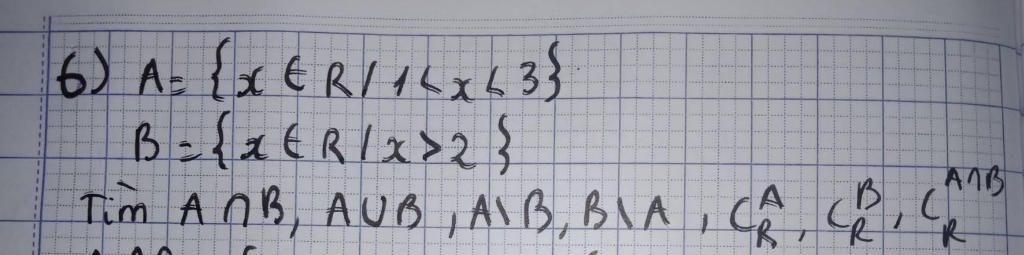 6) A = {x ∈ R / 1 < x < 3}
B = {x ∈ R / x > 2}
Tìm A ∩ B, A ∪ B, A \ B, B \ A, C_R^A, C_R^B, C_R^{A∩B}